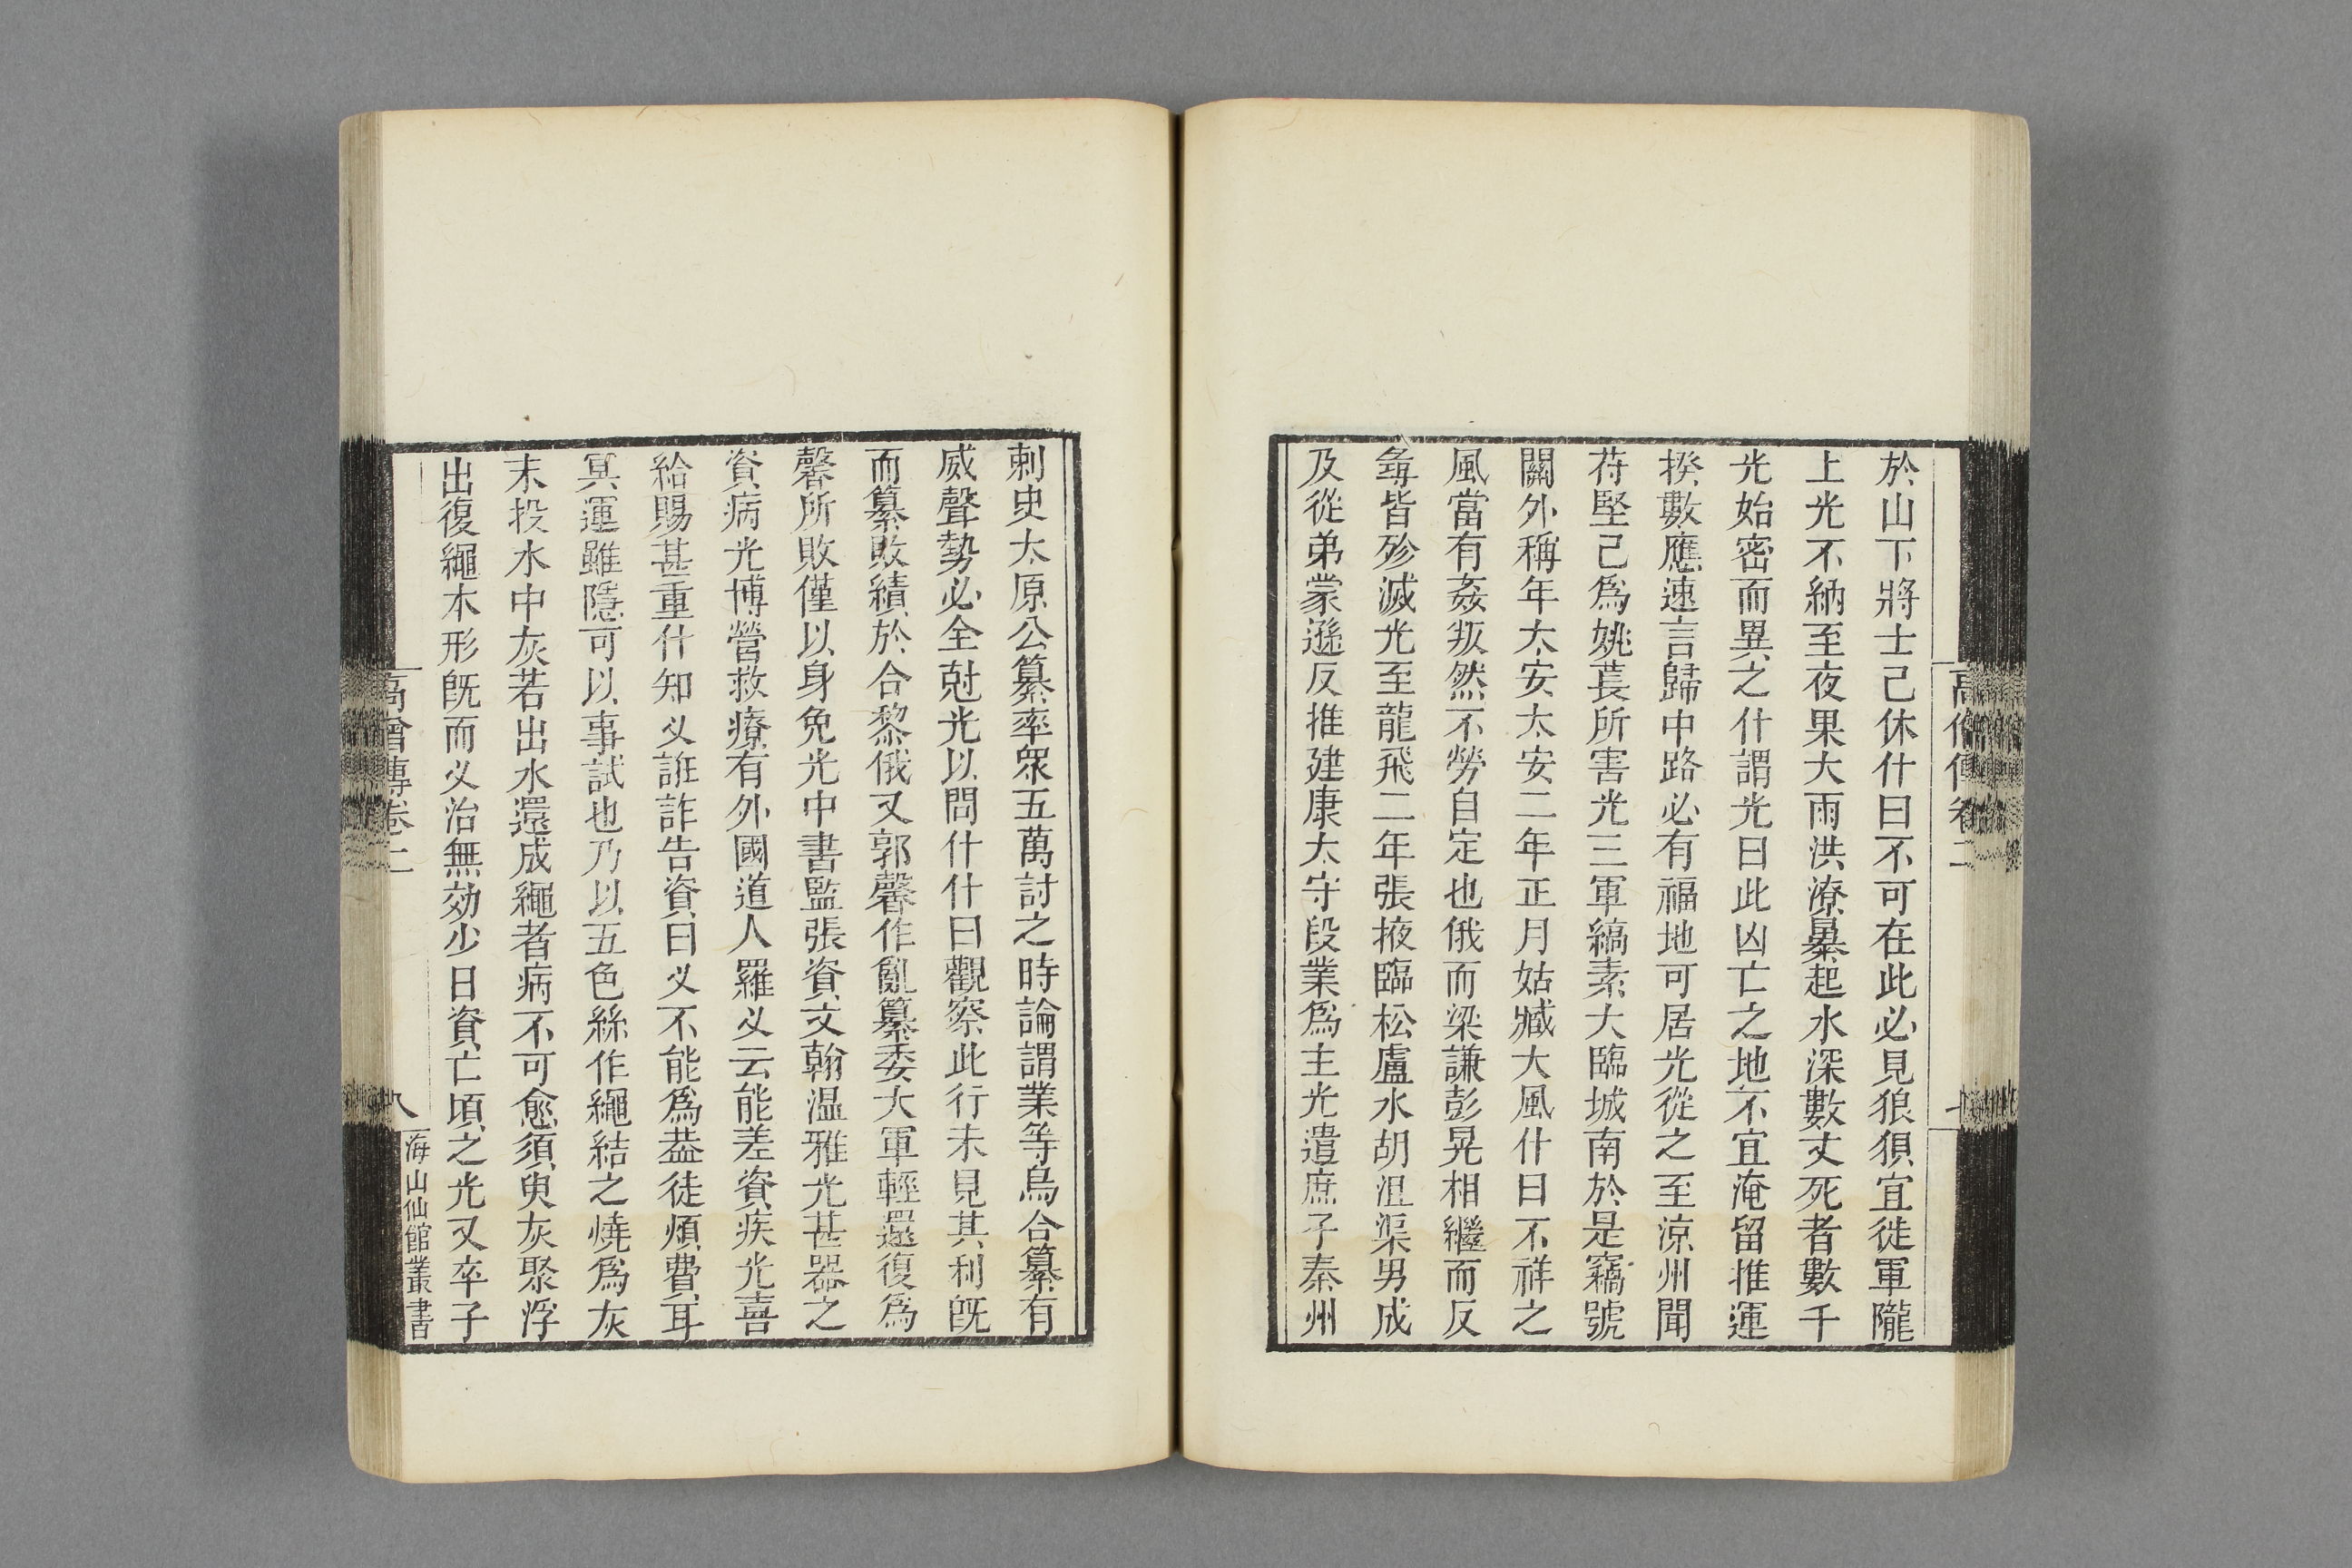 高僧傳卷二
於山下將士已休什曰不可在此必見狼狽宜徙軍隴
上光不納至夜果大雨洪潦暴起水深數丈死者數千
光始密而異之什謂光曰此凶亡之地不宜淹留推運
揆數應速言歸中路必有福地可居光從之至涼州聞
苻堅已爲姚萇所害光三軍縞素大臨城南於是竊號
關外稱年太安太安二年正月姑臧大風什曰不祥之
風當有姦叛然不勞自定也俄而梁謙彭晃相繼而反
尋皆殄滅光至龍飛二年張掖臨松盧水胡沮渠男成
及從弟蒙遜反推建康太守段業爲主光遣庶子秦州
刺史太原公纂率衆五萬討之時論謂業等烏合纂有
威聲勢必全尅光以問什什曰觀察此行未見其利旣
而纂敗績於合黎俄又郭馨作亂纂委大軍輕還復爲
馨所敗僅以身免光中書監張資文翰温雅光甚器之
資病光博營救療有外國道人羅义云能差資疾光喜
給賜甚重什知义誑詐告資曰义不能爲益徒煩費耳
冥運雖隱可以事試也乃以五色絲作繩結之燒爲灰
末投水中灰若出水還成繩者病不可愈須臾灰聚浮
出復繩本形旣而义治無効少日資亡頃之光又卒子
高僧傳卷二
八
海山仙館叢書